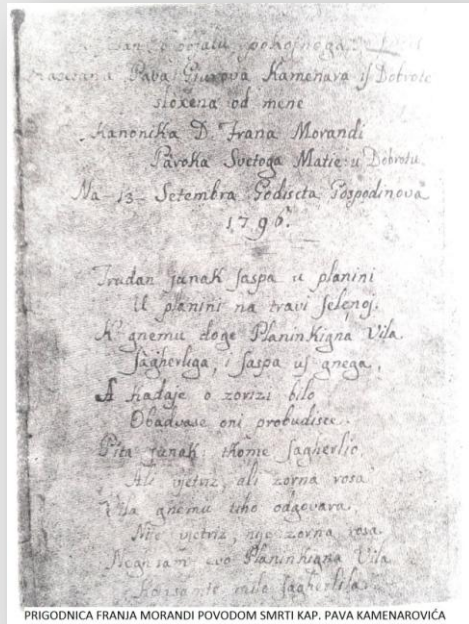 pokojnoga
Pava Giurova Kamenara iſ Dobrote
sloxena od mene
Kanonika D. Frana Morandi
Paroka Svetoga Matie u Dobrotu
Na-13- Setembra Godiscta Gospodinova
1796.
Trudan junak ſaspa u planini
U planini na travi ſelenoj.
K' gnemu doge Planinkigna Vila
ſagherliga, i ſaspa uſ gnega,
A kadaje o zorizi bilo
Obadvase oni probudisce.
Pita junak tkome ſagherlio
Ali vjetriz, ali zorna rosa
Vila gnemu tiho odgovara.
Nije vjetriz, nije zorna rosa
Negh sam evo Planinkigna Vila
milo ſagherlila.
PRIGODNICA FRANJA MORANDI POVODOM SMRTI KAP. PAVA KAMENAROVIĆA